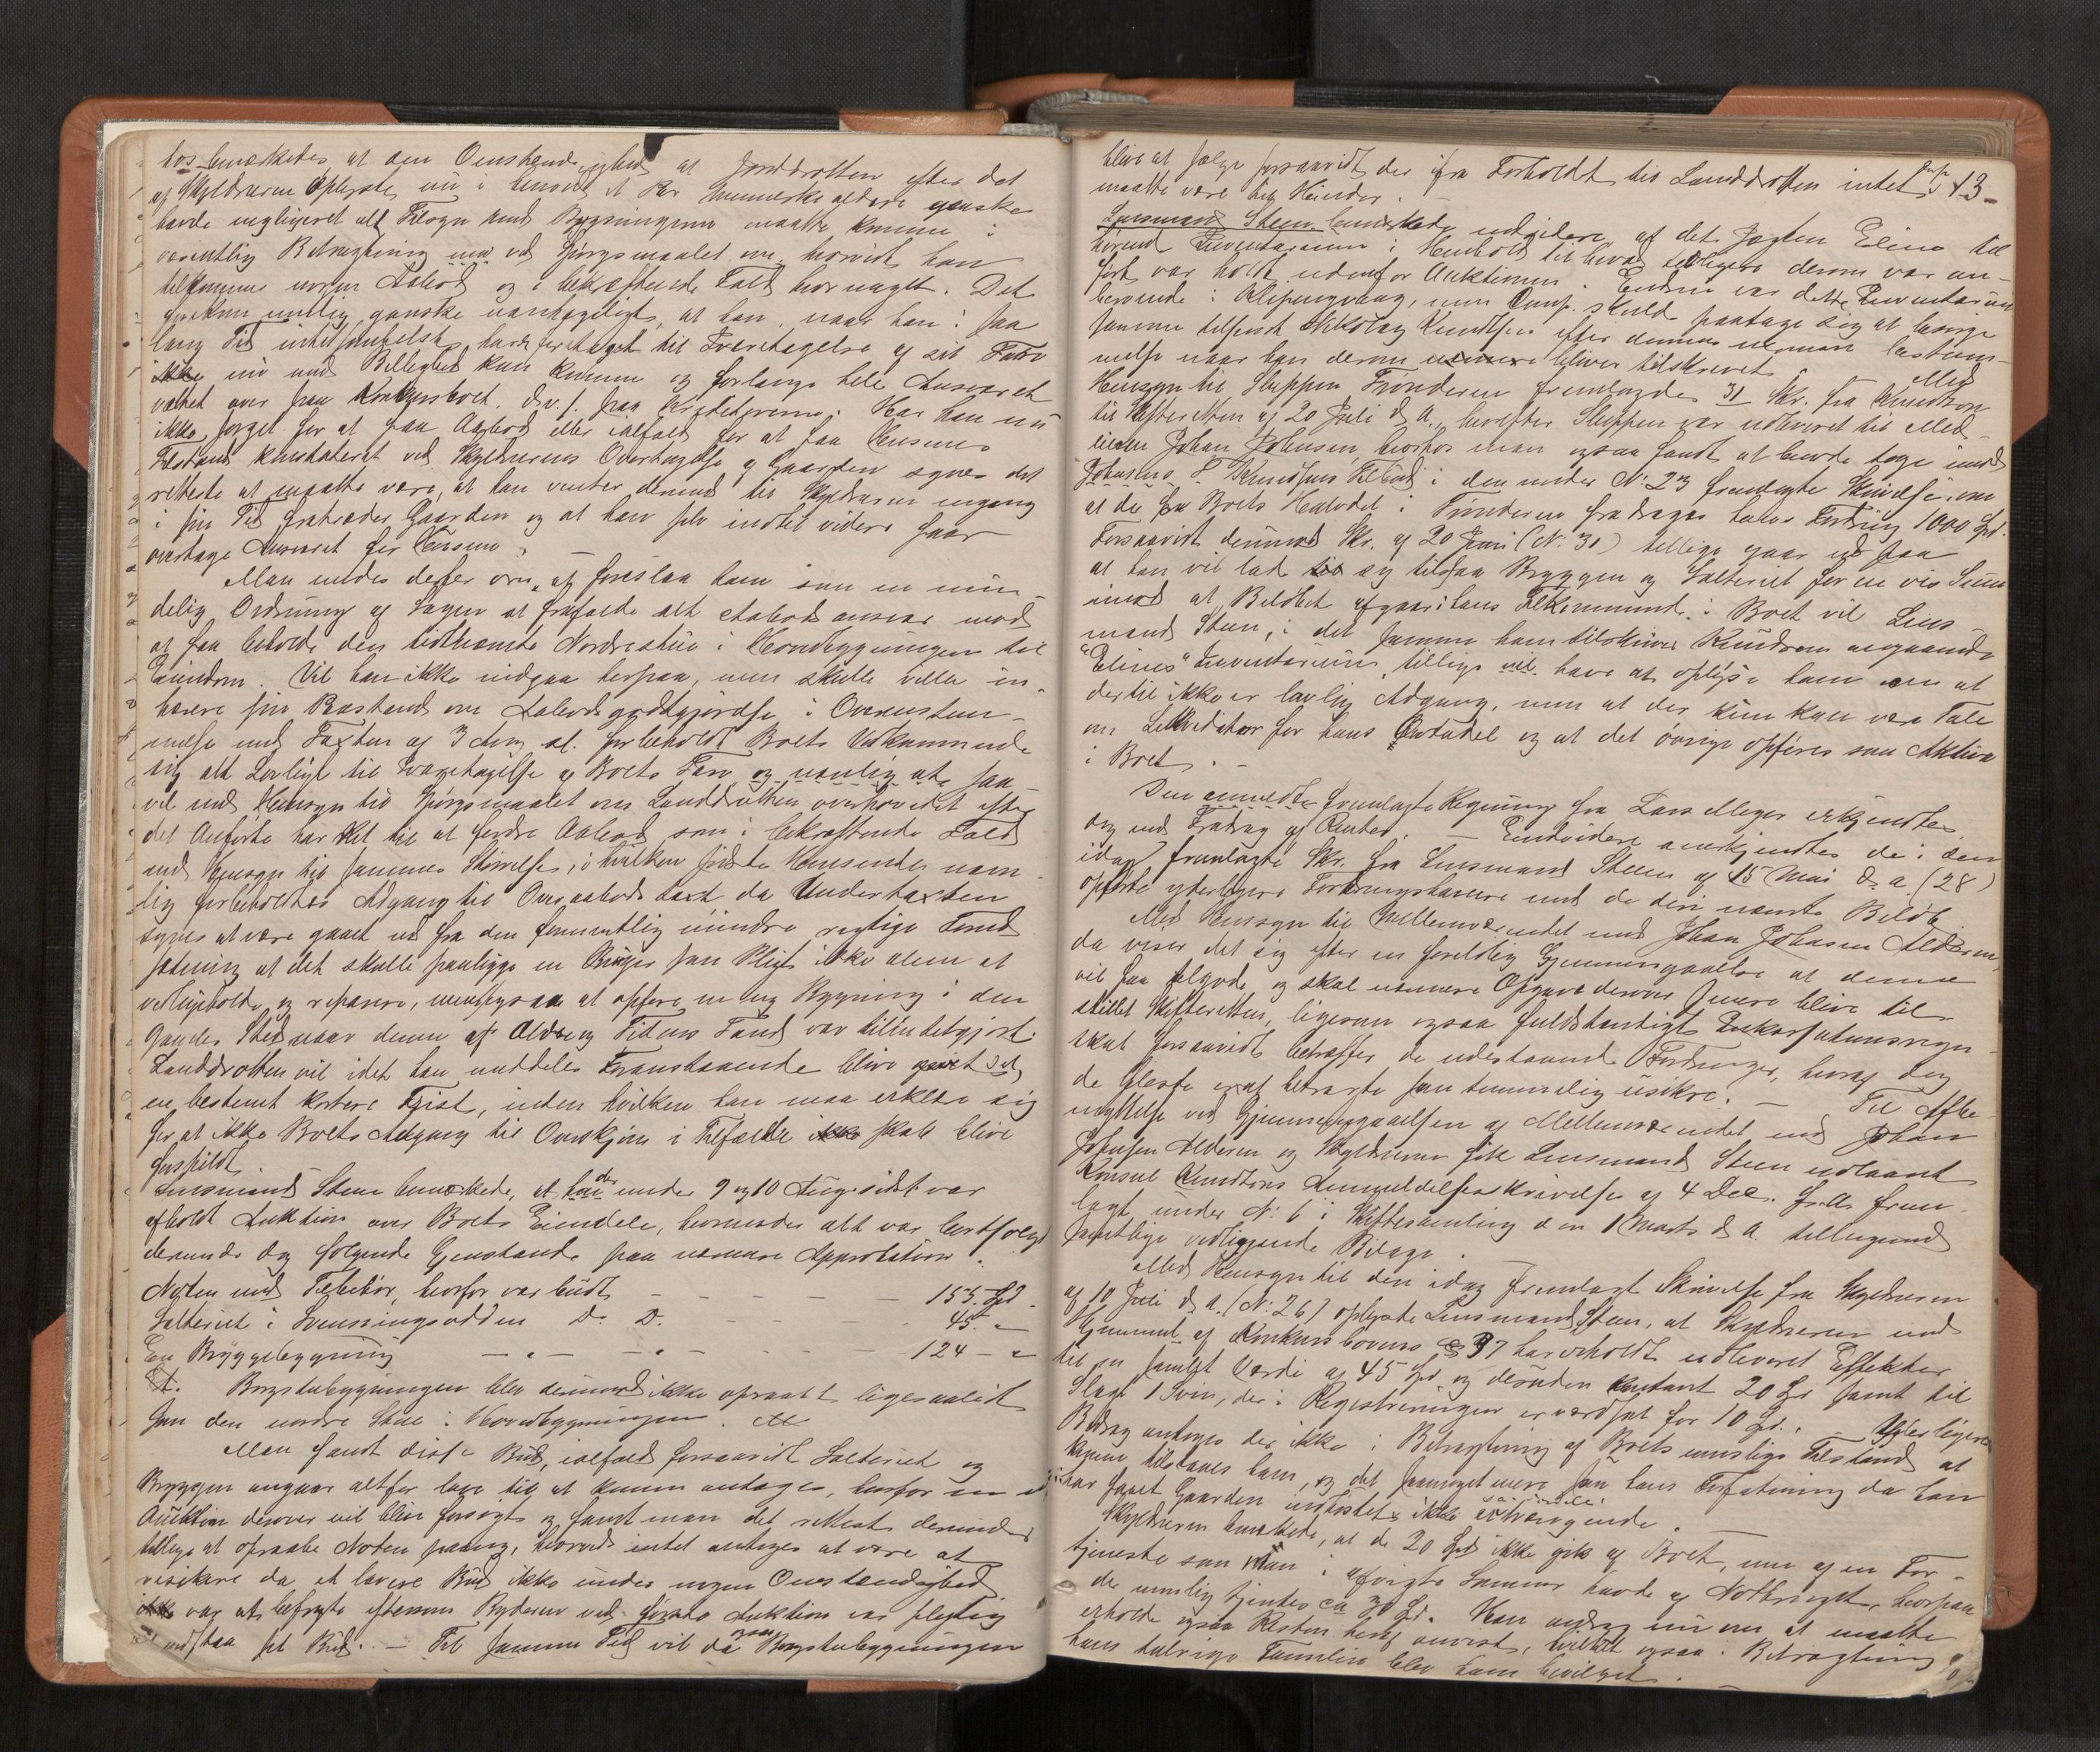 bemærkedes, at den Omstændighed at Jorddrotten efter det
af Skyldneren Oplyste nu i henved et Par Menneskealdere ganske
havde negligeret alt Tilsyn med Bygningerne maatte komme i
væsentlig Betragtning ved Spørgsmaalet om hvorvidt han
tilkommer nogen Aabod og i bekræftende Fald hvor meget. Det
forekom nemlig ganske uantageligt, at han, naar han i saa
lang Tid intetsomhelst har foretaget til Varetagelse af sit Tarv
nu med Billighed kan komme og forlange hele Ansvaret
væltet over paa Konkursboet, d.v.s. paa Kreditorerne. Har han nu
ikke sørget for at faa Aabod eller ialfald for at faa Husenes
Tilstand konstateret ved Skyldnerens Overtagelse af Gaarden synes det
retteste at maatte være, at han venter dermed til Skyldneren engang
i sin Tid fratræder Gaarden og at han selv indtil videre faar
overtage Ansvaret for Husene.
Man enedes derfor om, at foreslaa ham som en min-
delig Ordning af Sagen at frafalde alt Aabodsansvar mod
at faa beholde den omnævnte Nordrestue i Hovedbygningen til
Eiendom. Vil han ikke indgaa herpaa, men skulle ville in-
hærere sin Paastand om Aabodsgodtgjørelse i Overenstem-
melse med Taxten af 3 dvs. al. forbeholdt Boets Vedkommende
sig alt Lovligt til Varetagelse af Boets Tarv og navnlig at saa-
vel med Hensyn til Spørgsmaalet om Landdrotten overhovedet efter
det Anførte har Ret til at fordre Aabod som i bekræftende Fald
med Hensyn til sammes Størrelse, i hvilken sidste Henseende nem-
lig forbeholdtes Adgang til Overaabodstaxt da Undertaxten
synes at være gaaet ud fra den formentlig mindre rigtige Forud-
sætning at det skulle paaligge en Bruger saa Pligt ikke alene at
vedligeholde og reparere, men ogsaa at opføre en ny Bygning i den
Gamles Sted naar denne af Ælde og Tidens Tand var tilintetgjort.
Landdrotten vil idet han meddeles Foranstaaende blive givet
en bestemt kortere Frist, inden hvilken han maa erklære sig
for at ikke Boets Adgang til Overskjøn i Tilfælde skal blive
forspildt.
Lensmand Steen bemærkede, at der under 9 og 10 Aug. sidst var
afholdt Auktion over Boets Eiendele, hvorunder alt var bortsolgt
derunder dog følgende Gjenstande paa nærmere Approbation:
Noten med Tilbehør, hvorfor var budt — — — — 153 Spd.
Salteriet i Svenningsodden D. D. — — — — 45 "
En Bryggebygning — " — — " — — — 124 — "
Borgstubygningen blev derimod ikke opraabt ligesaalidt
som den nordre Stue i Hovedbygningen.
Man fandt disse Bud, ialfald forsaavidt Salteriet og
Bryggen angaar altfor lave til at kunne antages, hvorfor en
Auktion derover vil blive forsøgt og fandt man det rettest derunder
tillige at opraabe Noten paany, hvorved intet antages at være at
risikere da et lavere Bud ikke under nogen Omstændighed
var at befrygte eftersom Byderen ved første Auktion er pligtig
at vedstaa sit Bud. — Til samme Tid vil da ogsaa Borgstubygningen
blive at sælge forsaavidt der ifra Forholdt til Landdrotten intet 13
maatte være til Hinder.
Lensmand Steen bemærkede endvidere, at det Jagten Eline til
hørende Inventarium i Henhold til hvad tidligere derom var an-
ført var holdt udenfor Auktionen. Endnu var dette Inventarium
beroende i Klipengvaag, men Comp. skulde paatage sig at besørge
samme tilsendt Nikolay Knudtson efter dennes nærmere bestem-
melse naar han derom bliver tilskrevet. Med
Hensyn til Sluppen Trønderen fremlagdes 31 Skr. fra Knudtson
til Skifteretten af 20 Juli d. A., hvorefter Sluppen var udleveret til Med-
eieren Johan Johnsen, hvorhos man ogsaa fandt at burde tage imod
Johnsens & Knudtsons Tilbud i den under No. 23 fremlagte Skrivelse om
at der fra Boets Halvdel i Trønderen fradrages hans Fordring 1000 Spd.
Forsaavidt derimod Skr. af 20 Juni (No. 30) tillige gaar ud paa
at han vil lade sig tilslaa Bryggen og Salteriet for en vis Sum
imod at Beløbet afgaar i hans Tilkommende i Boet vil Lens-
mand Steen, i det samme ham tilskrives Knudtson angaaende
"Elines" Inventarium, tillige have at oplyse ham om at
dertil ikke er lovlig Adgang, men at der kun kan være Tale
om Likvidation for hans Andel og at det øvrige opføres som Aktiva
i Boet. —
Den anmeldte fremlagte Regning fra Lars Meyer erkjendtes
dog med Fradrag af Renter. — Endvidere anerkjendtes de i den
idag fremlagte Skr. fra Lensmand Steen af 15 Mai d. a. (28)
opførte yderligere Fordringshavere med de deri nævnte Beløb.
Med Hensyn til Mellemværendet med Johan Johnsen Alderen,
da viser det sig efter en foreløbig Gjennemgaaelse at denne
vil faa tilgode og skal nærmere Opgave derover senere blive til-
stillet Skifteretten, ligesom ogsaa fuldstændigt Inkassationsregn-
skab forsaavidt betræffer de udestaaende Fordringer, hvoraf dog
de fleste er at betragte som temmelig usikre. — Til Afbe-
nyttelse ved Gjennemgaaelsen af Mellemværendet med Johan
Johnsen Alderen og Skyldneren fik Lensmand Steen udlaant
Konsul Knudtzons Anmeldelsesskrivelse af 4 Dec. f. A. frem-
lagt under No. 6 i Skiftesamling den 1 Marts d. A. tilligemed
samtlige vedliggende Bilage.
Med Hensyn til den idag fremlagt Skrivelse fra Skyldneren
af 10 Juli d. A. (No. 26) oplyste Lensmand Steen, at Skyldneren med
Hjemmel af Konkurslovens § 37 har erholdt udleveret Effekter
til en samlet Værdi af 45 Spd. og desuden kontant 20 Spd. samt til
Slagt 1 Svin, der i Registreringen er værdsat for 10 Spd. — Yderligere
Bidrag antoges der ikke i Betragtning af Boets usselige Tilstand at
kunne tilstaaes ham, og det saameget mere som hans Forfatning da han
har faaet Gaarden indfæstet ikke
Skyldneren bemærkede, at de 20 Spd. ikke gik af Boet, men af en For-
tjeneste som han i afvigte Sommer havde af Notbruget, hvorpaa
der nemlig tjentes ca 30 Spd. Han androg nu om at maatte
erholde ogsaa Resten heraf anvist, hvilket ogsaa i Betragtning af
hans talrige Familie blev ham bevilget. —